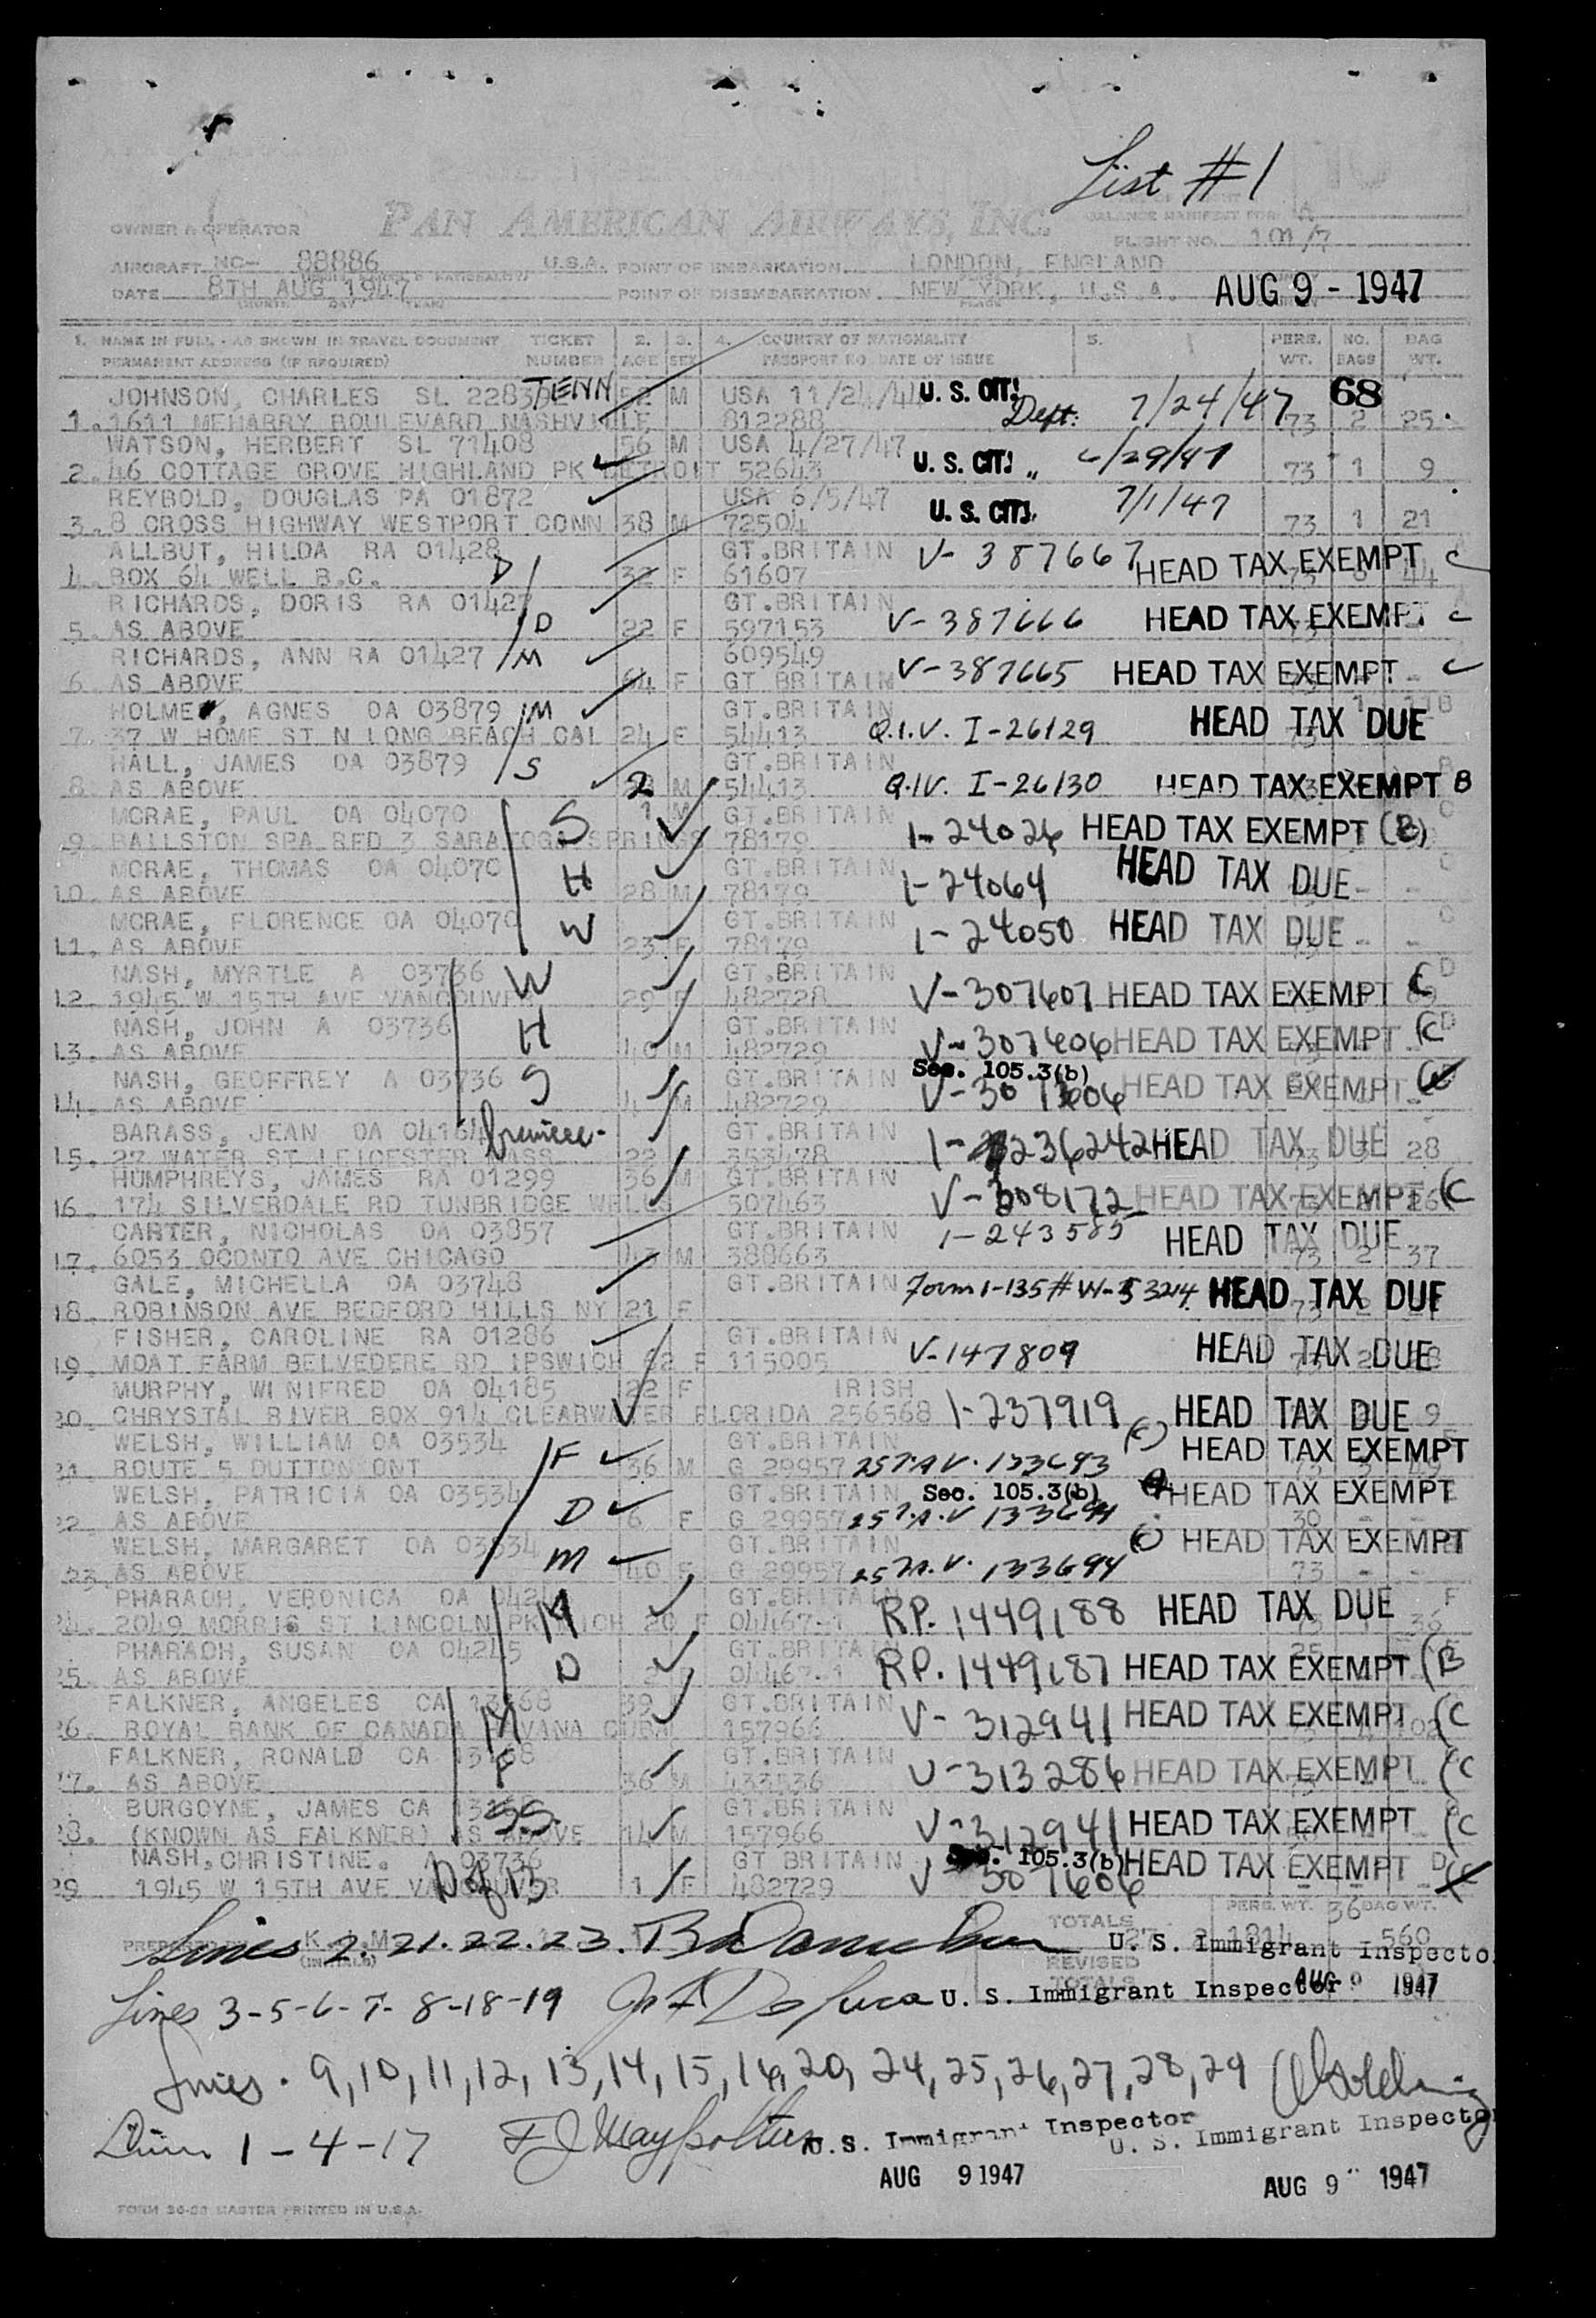 List #1
OWNER & OPERATOR PAN AMERICAN AIRWAYS, INC.
BALANCE MANIFEST FOR
FLIGHT NO. 101/7
AIRCRAFT NC- 88886 U.S.A. POINT OF EMBARKATION LONDON, ENGLAND
DATE 8TH AUG 1947 POINT OF DISEMBARKATION NEW YORK, U.S.A. AUG 9 - 1947
1. NAME IN FULL - AS SHOWN IN TRAVEL DOCUMENT TICKET 2. 3. 4. COUNTRY OF NATIONALITY 5. PERS. NO. BAG
PERMANENT ADDRESS (IF REQUIRED) NUMBER AGE SEX PASSPORT NO. DATE OF ISSUE WT. BAGS WT.
JOHNSON, CHARLES SL TENN 52 M USA 11/24/44 U. S. CIT. 68
1. 1611 MEHARRY BOULEVARD NASHVILLE 812288 Dept: 7/24/47 73 2 25
WATSON, HERBERT SL 71408 56 M USA 4/27/47
2. 46 COTTAGE GROVE HIGHLAND PK DETROIT 52643 U. S. CIT. " 6/29/47 73 1 9
REYBOLD, DOUGLAS PA 01872 USA 6/5/47
3. 8 CROSS HIGHWAY WESTPORT CONN 38 M 72504 U. S. CIT. 7/1/47 73 1 21
ALLBUT, HILDA RA 01428 GT.BRITAIN V-387667 HEAD TAX EXEMPT C
4. BOX 64 WELL B.C. D 32 F 61607 44
RICHARDS, DORIS RA 01427 GT.BRITAIN
5. AS ABOVE D 22 F 597153 V-387666 HEAD TAX EXEMPT C
RICHARDS, ANN RA 01427 M 609549
6. AS ABOVE 64 F GT BRITAIN V-387665 HEAD TAX EXEMPT C
HOLMES, AGNES OA 03879 M GT.BRITAIN
7. 37 W HOME ST N LONG BEACH CAL 24 F 54413 Q.I.V. I-26129 HEAD TAX DUE
HALL, JAMES OA 03879 S GT.BRITAIN
8. AS ABOVE 2 M 54413 Q.I.V. I-26130 HEAD TAX EXEMPT B
MCRAE, PAUL OA 04070 S 1 M GT.BRITAIN
9. BALLSTON SPA RED 3 SARATOGA SPRINGS 78179 I-24026 HEAD TAX EXEMPT (B)
MCRAE, THOMAS OA 04070 H GT.BRITAIN
10. AS ABOVE 28 M 78179 I-24064 HEAD TAX DUE
MCRAE, FLORENCE OA 04070 W GT.BRITAIN
11. AS ABOVE 23 F 78179 I-24050 HEAD TAX DUE
NASH, MYRTLE A 03736 W GT.BRITAIN
12. 1945 W 15TH AVE VANCOUVER 29 F 482728 V-307607 HEAD TAX EXEMPT C
NASH, JOHN A 03736 H GT.BRITAIN
13. AS ABOVE 40 M 482729 V-307606 HEAD TAX EXEMPT (C
NASH, GEOFFREY A 03736 S GT.BRITAIN Sec. 105.3(b)
14. AS ABOVE 4 M 482729 V-307606 HEAD TAX EXEMPT
BARASS, JEAN OA 04164 GT.BRITAIN
15. 27 WATER ST LEICESTER MASS 22 353478 I-236242 HEAD TAX DUE 73 3 28
HUMPHREYS, JAMES RA 01299 36 M GT.BRITAIN
16. 174 SILVERDALE RD TUNBRIDGE WELLS 507463 V-308172 HEAD TAX EXEMPT (C
CARTER, NICHOLAS OA 03857 GT.BRITAIN I-243585
17. 6053 OCONTO AVE CHICAGO 43 M 388663 HEAD TAX DUE 73 2 37
GALE, MICHELLA OA 03748 GT.BRITAIN Form I-135 # W-53214 HEAD TAX DUE
18. ROBINSON AVE BEDFORD HILLS NY 21 F
FISHER, CAROLINE RA 01286 GT.BRITAIN
19. MOAT FARM BELVEDERE RD IPSWICH 62 F 115005 V-147809 HEAD TAX DUE
MURPHY, WINIFRED OA 04185 22 F IRISH
20. CHRYSTAL RIVER BOX 914 CLEARWATER FLORIDA 256568 I-237919 HEAD TAX DUE 9
WELSH, WILLIAM OA 03534 F GT.BRITAIN (C) HEAD TAX EXEMPT
21. ROUTE 5 DUTTON ONT 36 M G 29957 257A V. 133693
WELSH, PATRICIA OA 03534 D GT.BRITAIN Sec. 105.3(b) HEAD TAX EXEMPT
22. AS ABOVE 6 F G 29957 257A.V 133694 30
WELSH, MARGARET OA 03534 M GT.BRITAIN (C) HEAD TAX EXEMPT
23. AS ABOVE 40 F G 29957 257A.V. 133694 73
PHARAOH, VERONICA OA M GT.BRITAIN
24. 2049 MORRIS ST LINCOLN PK MICH 20 F 04467-1 RP. 1449188 HEAD TAX DUE 36
PHARAOH, SUSAN OA 04245 D GT.BRITAIN 25
25. AS ABOVE 2 04467-1 RP. 1449187 HEAD TAX EXEMPT (B
FALKNER, ANGELES CA 13168 M 39 GT.BRITAIN
26. ROYAL BANK OF CANADA HAVANA CUBA 157966 V-312941 HEAD TAX EXEMPT (C
FALKNER, RONALD CA 13168 F GT.BRITAIN
27. AS ABOVE 36 M 433536 V-313286 HEAD TAX EXEMPT (C
BURGOYNE, JAMES CA S.S. GT.BRITAIN
28. (KNOWN AS FALKNER) AS ABOVE 14 M 157966 V-312941 HEAD TAX EXEMPT (C
NASH, CHRISTINE. A 03736 GT BRITAIN Sec. 105.3(b) HEAD TAX EXEMPT
29 1945 W 15TH AVE VANCOUVER 1 F 482729 V 307606
PERS. WT. 36 BAG WT.
TOTALS 27 1814 560
Lines 2. 21. 22. 23. U. S. Immigrant Inspector
REVISED TOTALS AUG 9 1947
Lines 3-5-6-7-8-18-19 U. S. Immigrant Inspector
Lines. 9, 10, 11, 12, 13, 14, 15, 16, 20, 24, 25, 26, 27, 28, 29
Lines 1-4-17 U.S. Immigrant Inspector U. S. Immigrant Inspector
AUG 9 1947 AUG 9 1947
FORM 36-23 MASTER PRINTED IN U.S.A.